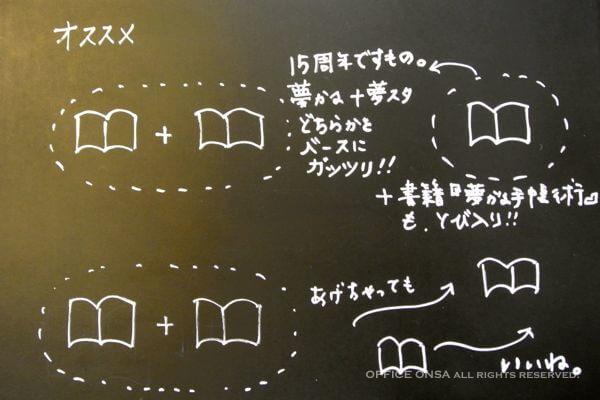 オススメ
15周年ですもの。
夢かな+夢スタ
どちらかを
ベースに
ガッツリ!!
+
+書籍『夢かな手帳術』
も、とび入り!!
あげちゃっても
+
いいね。
OFFICE ONSA ALL RIGHTS RESERVED.